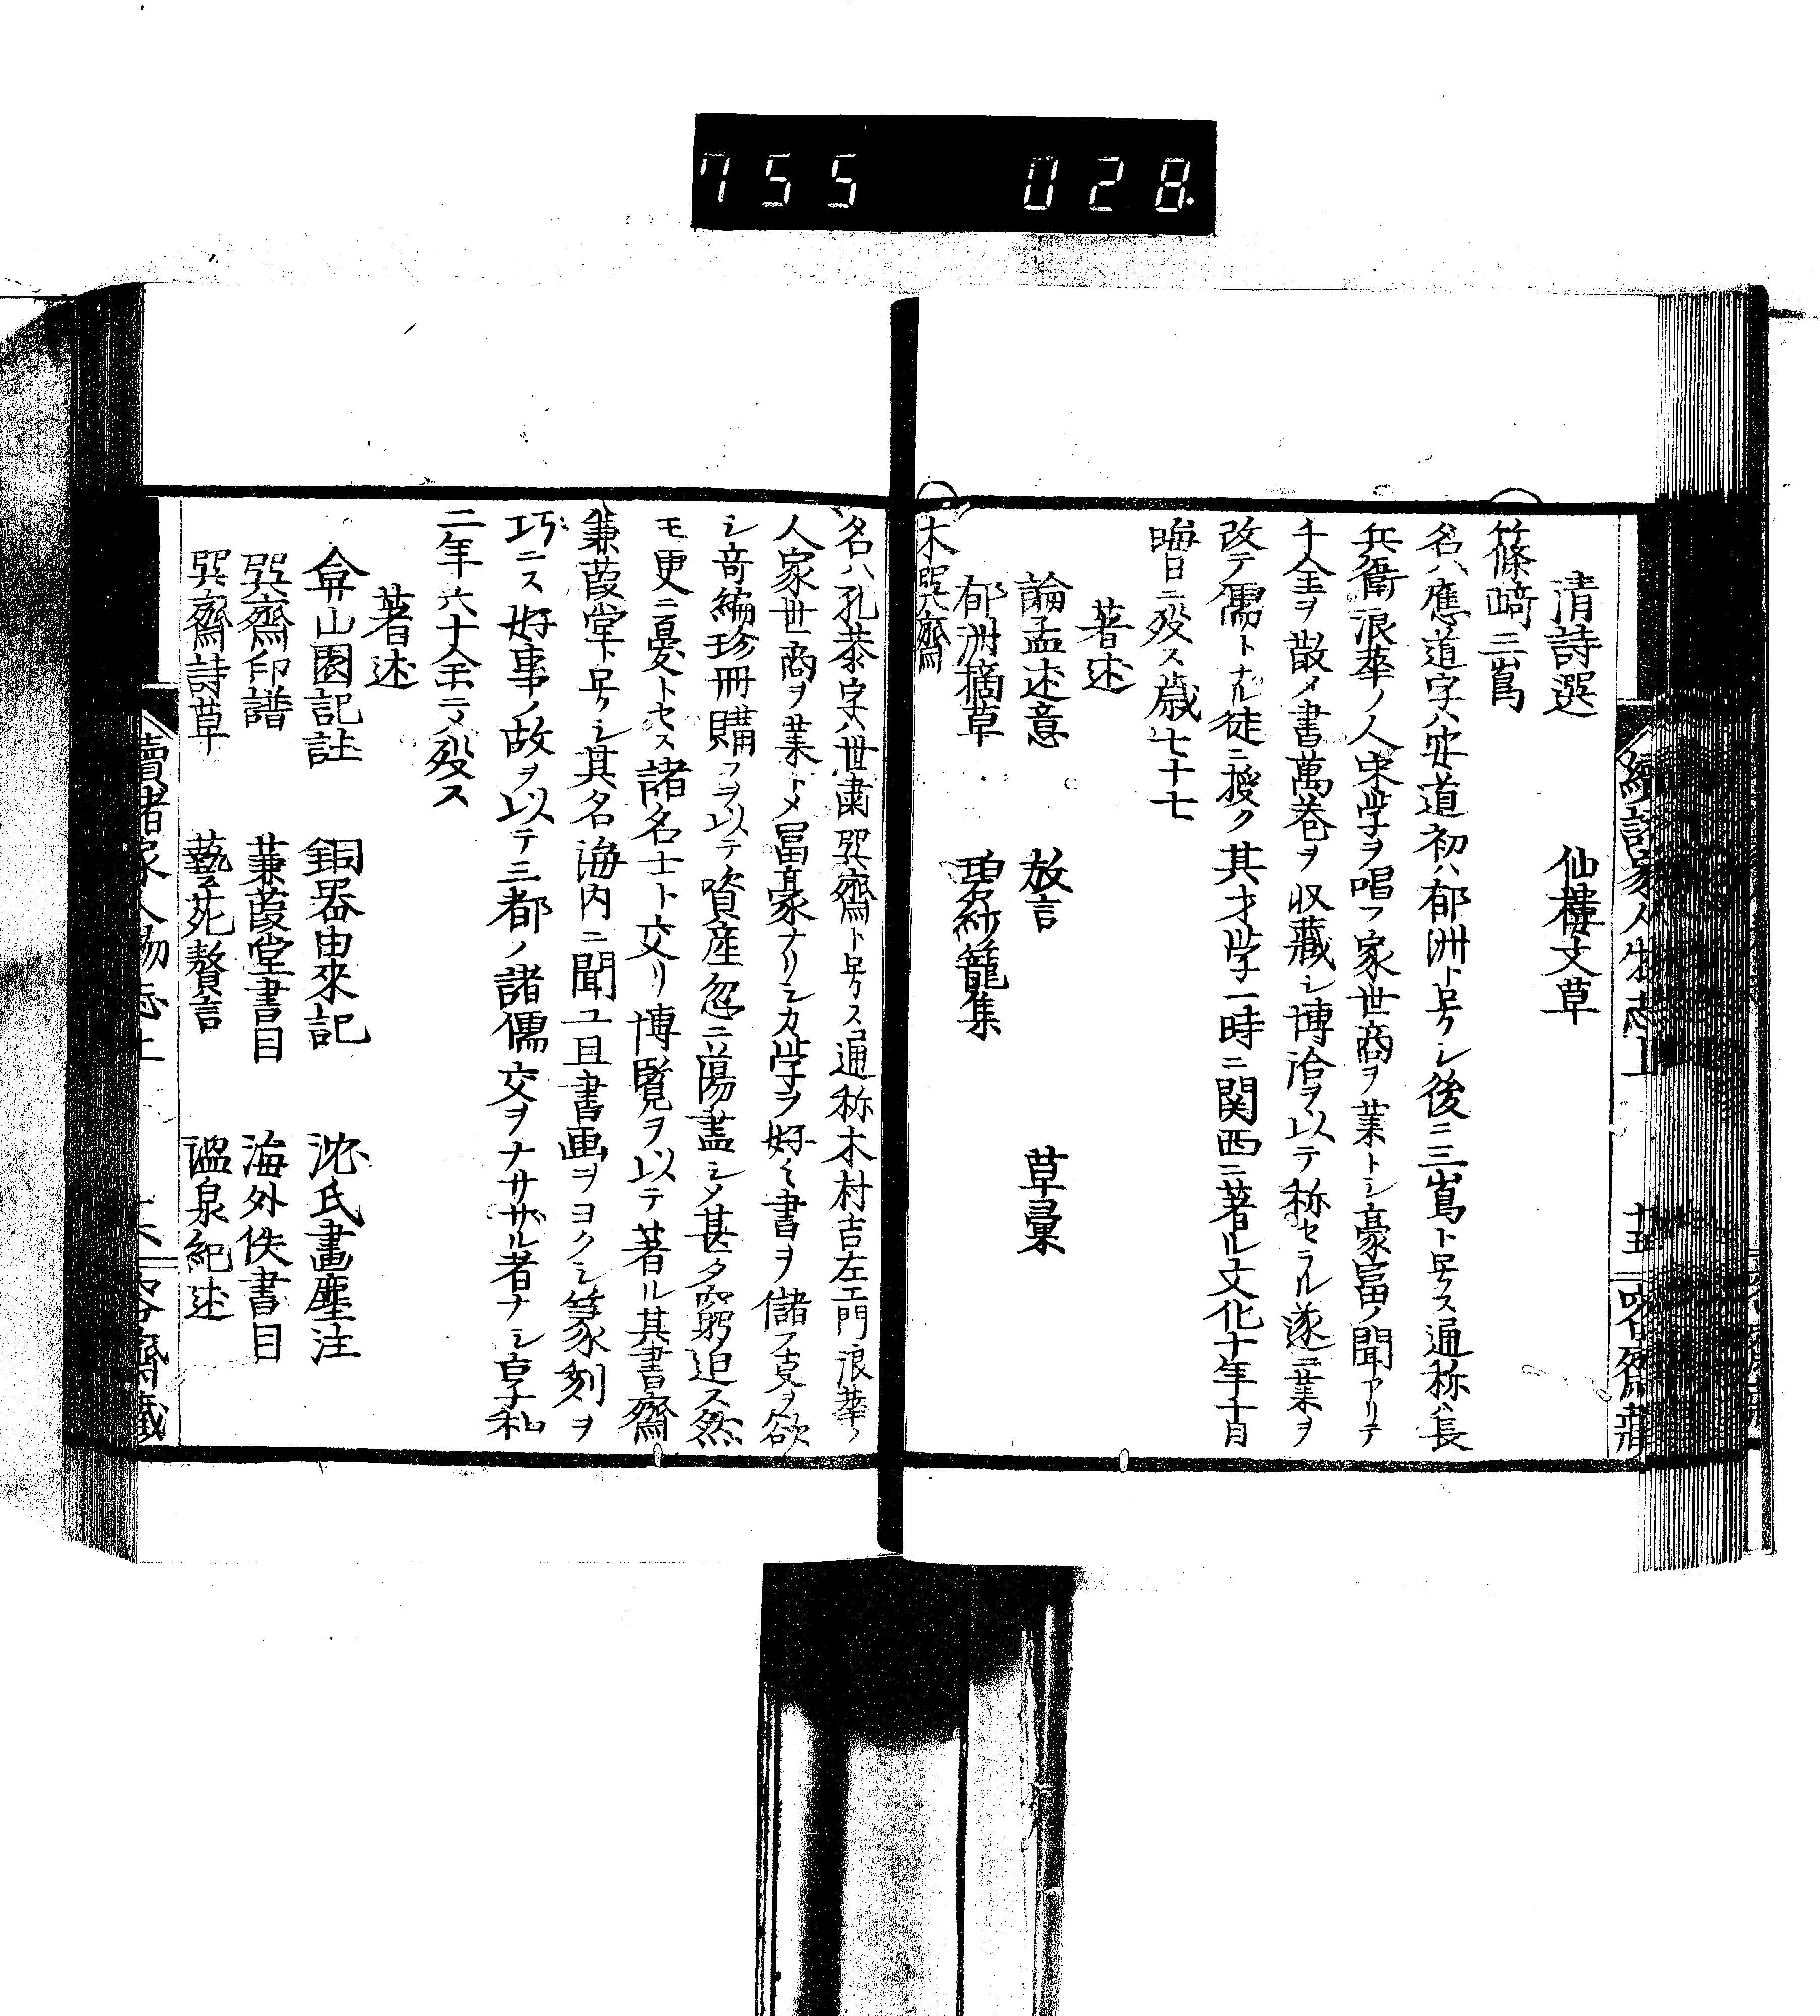 755 028.
清詩選 仙樓文草
篠﨑三嶌
名ハ應道字ハ安道初ハ郁洲ト号シ後ニ三嶌ト号ス通称ハ長
兵衛浪華ノ人宋学ヲ唱フ家世商ヲ業トシ豪富ノ聞アリテ
千金ヲ散メ書萬巻ヲ収藏シ博洽ヲ以テ称セラル遂ニ業ヲ
改テ儒トナル徒ニ授ク其才学一時ニ関西ニ著ル文化十年十月
晦日ニ殁ス歳七十七
著述
論孟述意 放言 草彙
郁洲摘草 碧紗籠集
木巽齋
名ハ孔恭字ハ世肅巽齋ト号ス通称木村吉左エ門浪華ノ
人家世商ヲ業トメ冨豪ナリシカ学ヲ好ミ書ヲ儲フ支ヲ欲
シ竒編珍冊購フヲ以テ資産忽ニ蕩盡シメ甚タ窮迫ス然
モ更ニ憂トセス諸名士ト交リ博覧ヲ以テ著ル其書齋
蒹葭堂ト号シ其名海内ニ聞ユ且書画ヲヨクシ篆刻ヲ
巧ニス好事ノ故ヲ以テ三都ノ諸儒交ヲナサザル者ナシ享和
二年六十余ニメ殁ス
著述
弇山園記註 銅器由來記 沈氏畫塵注
巽齋印譜 蒹葭堂書目 海外佚書目
巽齋詩草 藝苑贅言 溫泉紀述
續諸家人物志上